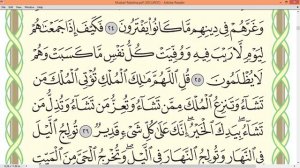 (SECURED) - Adobe Reader
وَغَرَّهُمْ فِى دِينِهِم مَّا كَانُوا۟ يَفْتَرُونَ ٢٤ فَكَيْفَ إِذَا جَمَعْنَٰهُمْ
لِيَوْمٍ لَّا رَيْبَ فِيهِ وَوُفِّيَتْ كُلُّ نَفْسٍ مَّا كَسَبَتْ وَهُمْ
لَا يُظْلَمُونَ ٢٥ قُلِ ٱللَّهُمَّ مَٰلِكَ ٱلْمُلْكِ تُؤْتِى ٱلْمُلْكَ مَن
تَشَآءُ وَتَنزِعُ ٱلْمُلْكَ مِمَّن تَشَآءُ وَتُعِزُّ مَن تَشَآءُ وَتُذِلُّ مَن
تَشَآءُ بِيَدِكَ ٱلْخَيْرُ إِنَّكَ عَلَىٰ كُلِّ شَىْءٍ قَدِيرٌ ٢٦ تُولِجُ ٱلَّيْلَ
فِى ٱلنَّهَارِ وَتُولِجُ ٱلنَّهَارَ فِى ٱلَّيْلِ وَتُخْرِجُ ٱلْحَىَّ مِنَ ٱلْمَيِّتِ